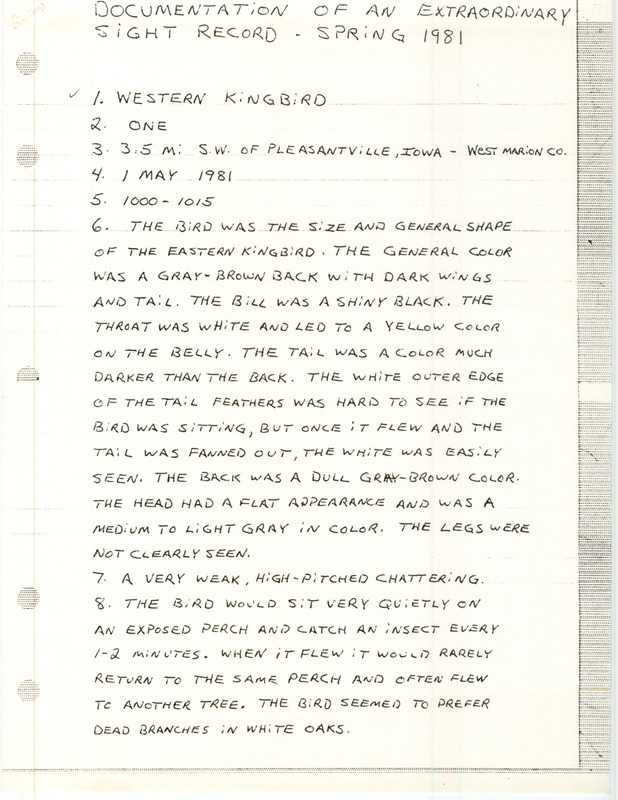 DOCUMENTATION OF AN EXTRAORDINARY
SIGHT RECORD - SPRING 1981
✓ 1. WESTERN KINGBIRD
2. ONE
3. 3.5 Mi S.W. OF PLEASANTVILLE, IOWA - WEST MARION CO.
4. 1 MAY 1981
5. 1000-1015
6. THE BIRD WAS THE SIZE AND GENERAL SHAPE
OF THE EASTERN KINGBIRD. THE GENERAL COLOR
WAS A GRAY-BROWN BACK WITH DARK WINGS
AND TAIL. THE BILL WAS A SHINY BLACK. THE
THROAT WAS WHITE AND LED TO A YELLOW COLOR
ON THE BELLY. THE TAIL WAS A COLOR MUCH
DARKER THAN THE BACK. THE WHITE OUTER EDGE
OF THE TAIL FEATHERS WAS HARD TO SEE IF THE
BIRD WAS SITTING, BUT ONCE IT FLEW AND THE
TAIL WAS FANNED OUT, THE WHITE WAS EASILY
SEEN. THE BACK WAS A DULL GRAY-BROWN COLOR.
THE HEAD HAD A FLAT APPEARANCE AND WAS A
MEDIUM TO LIGHT GRAY IN COLOR. THE LEGS WERE
NOT CLEARLY SEEN.
7. A VERY WEAK, HIGH-PITCHED CHATTERING.
8. THE BIRD WOULD SIT VERY QUIETLY ON
AN EXPOSED PERCH AND CATCH AN INSECT EVERY
1-2 MINUTES. WHEN IT FLEW IT WOULD RARELY
RETURN TO THE SAME PERCH AND OFTEN FLEW
TO ANOTHER TREE. THE BIRD SEEMED TO PREFER
DEAD BRANCHES IN WHITE OAKS.